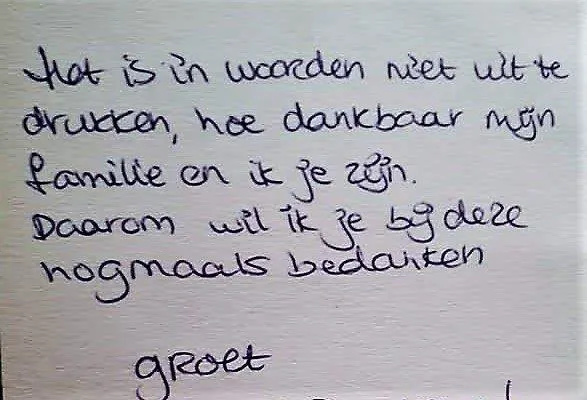 Het is in woorden niet uit te
drukken, hoe dankbaar mijn
familie en ik je zijn.
Daarom wil ik je bij deze
nogmaals bedanken
groet